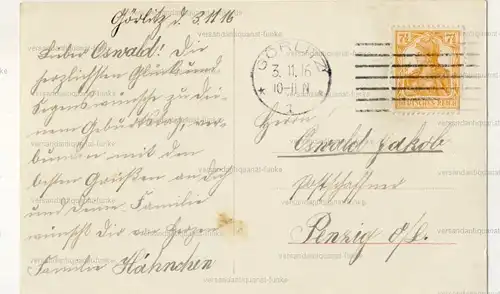 Görlitz d. 3.11.16
Lieber Oswald! Die
herzlichsten Glück und
Segenswünsche zu Dei-
nem Geburtstag, ver-
bunden mit den
besten Grüßen an Dich
und Deine Familie
wünscht Dir von Herzen
Familie Hähnchen
GÖRLITZ
3.11.16
10-11 N.
7½ 7½
DEUTSCHES REICH
Herrn
Oswald Jakob
Postschaffner
Penzig O/L.
versandantiquariat-funke